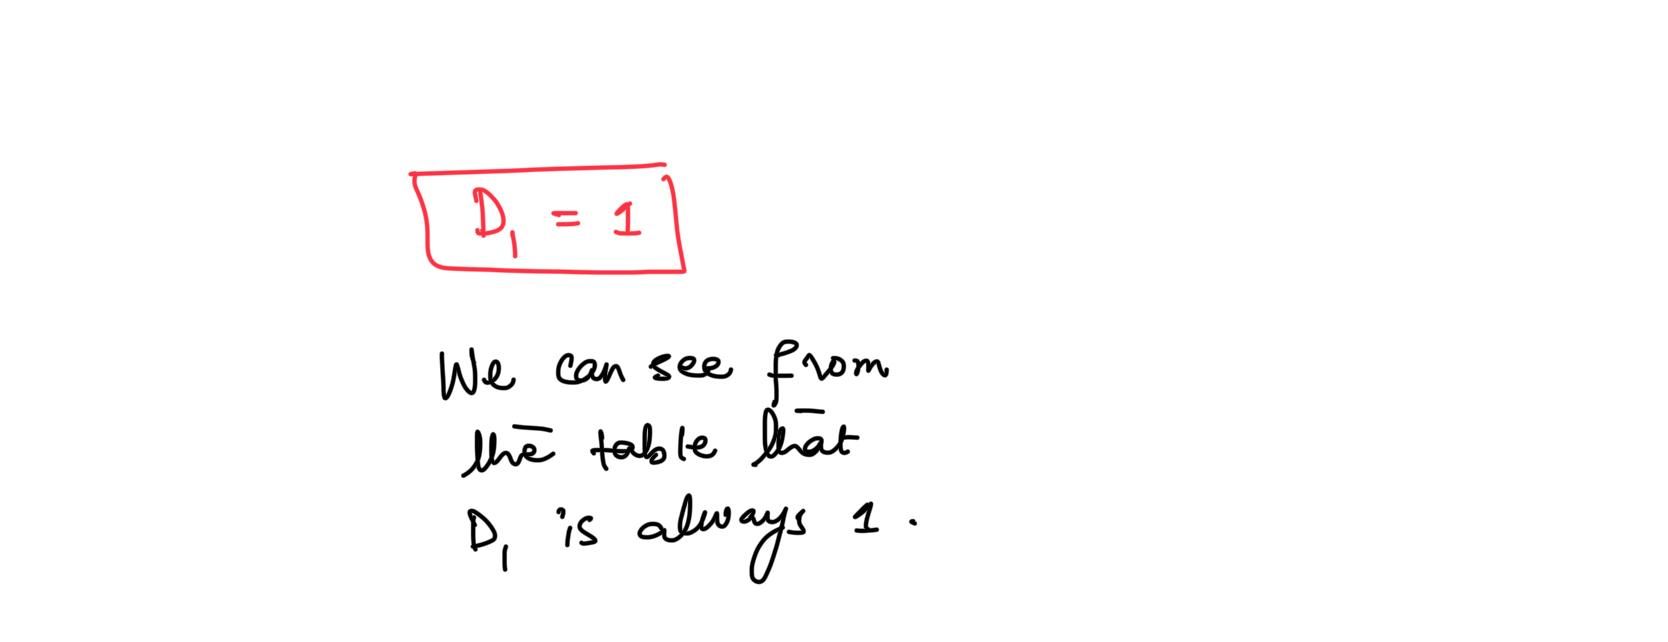 D₁ = 1
We can see from
the table that
D₁ is always 1.